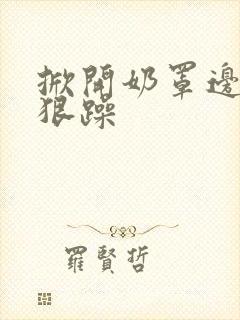 掀開奶罩邊
狠躁
羅賢哲